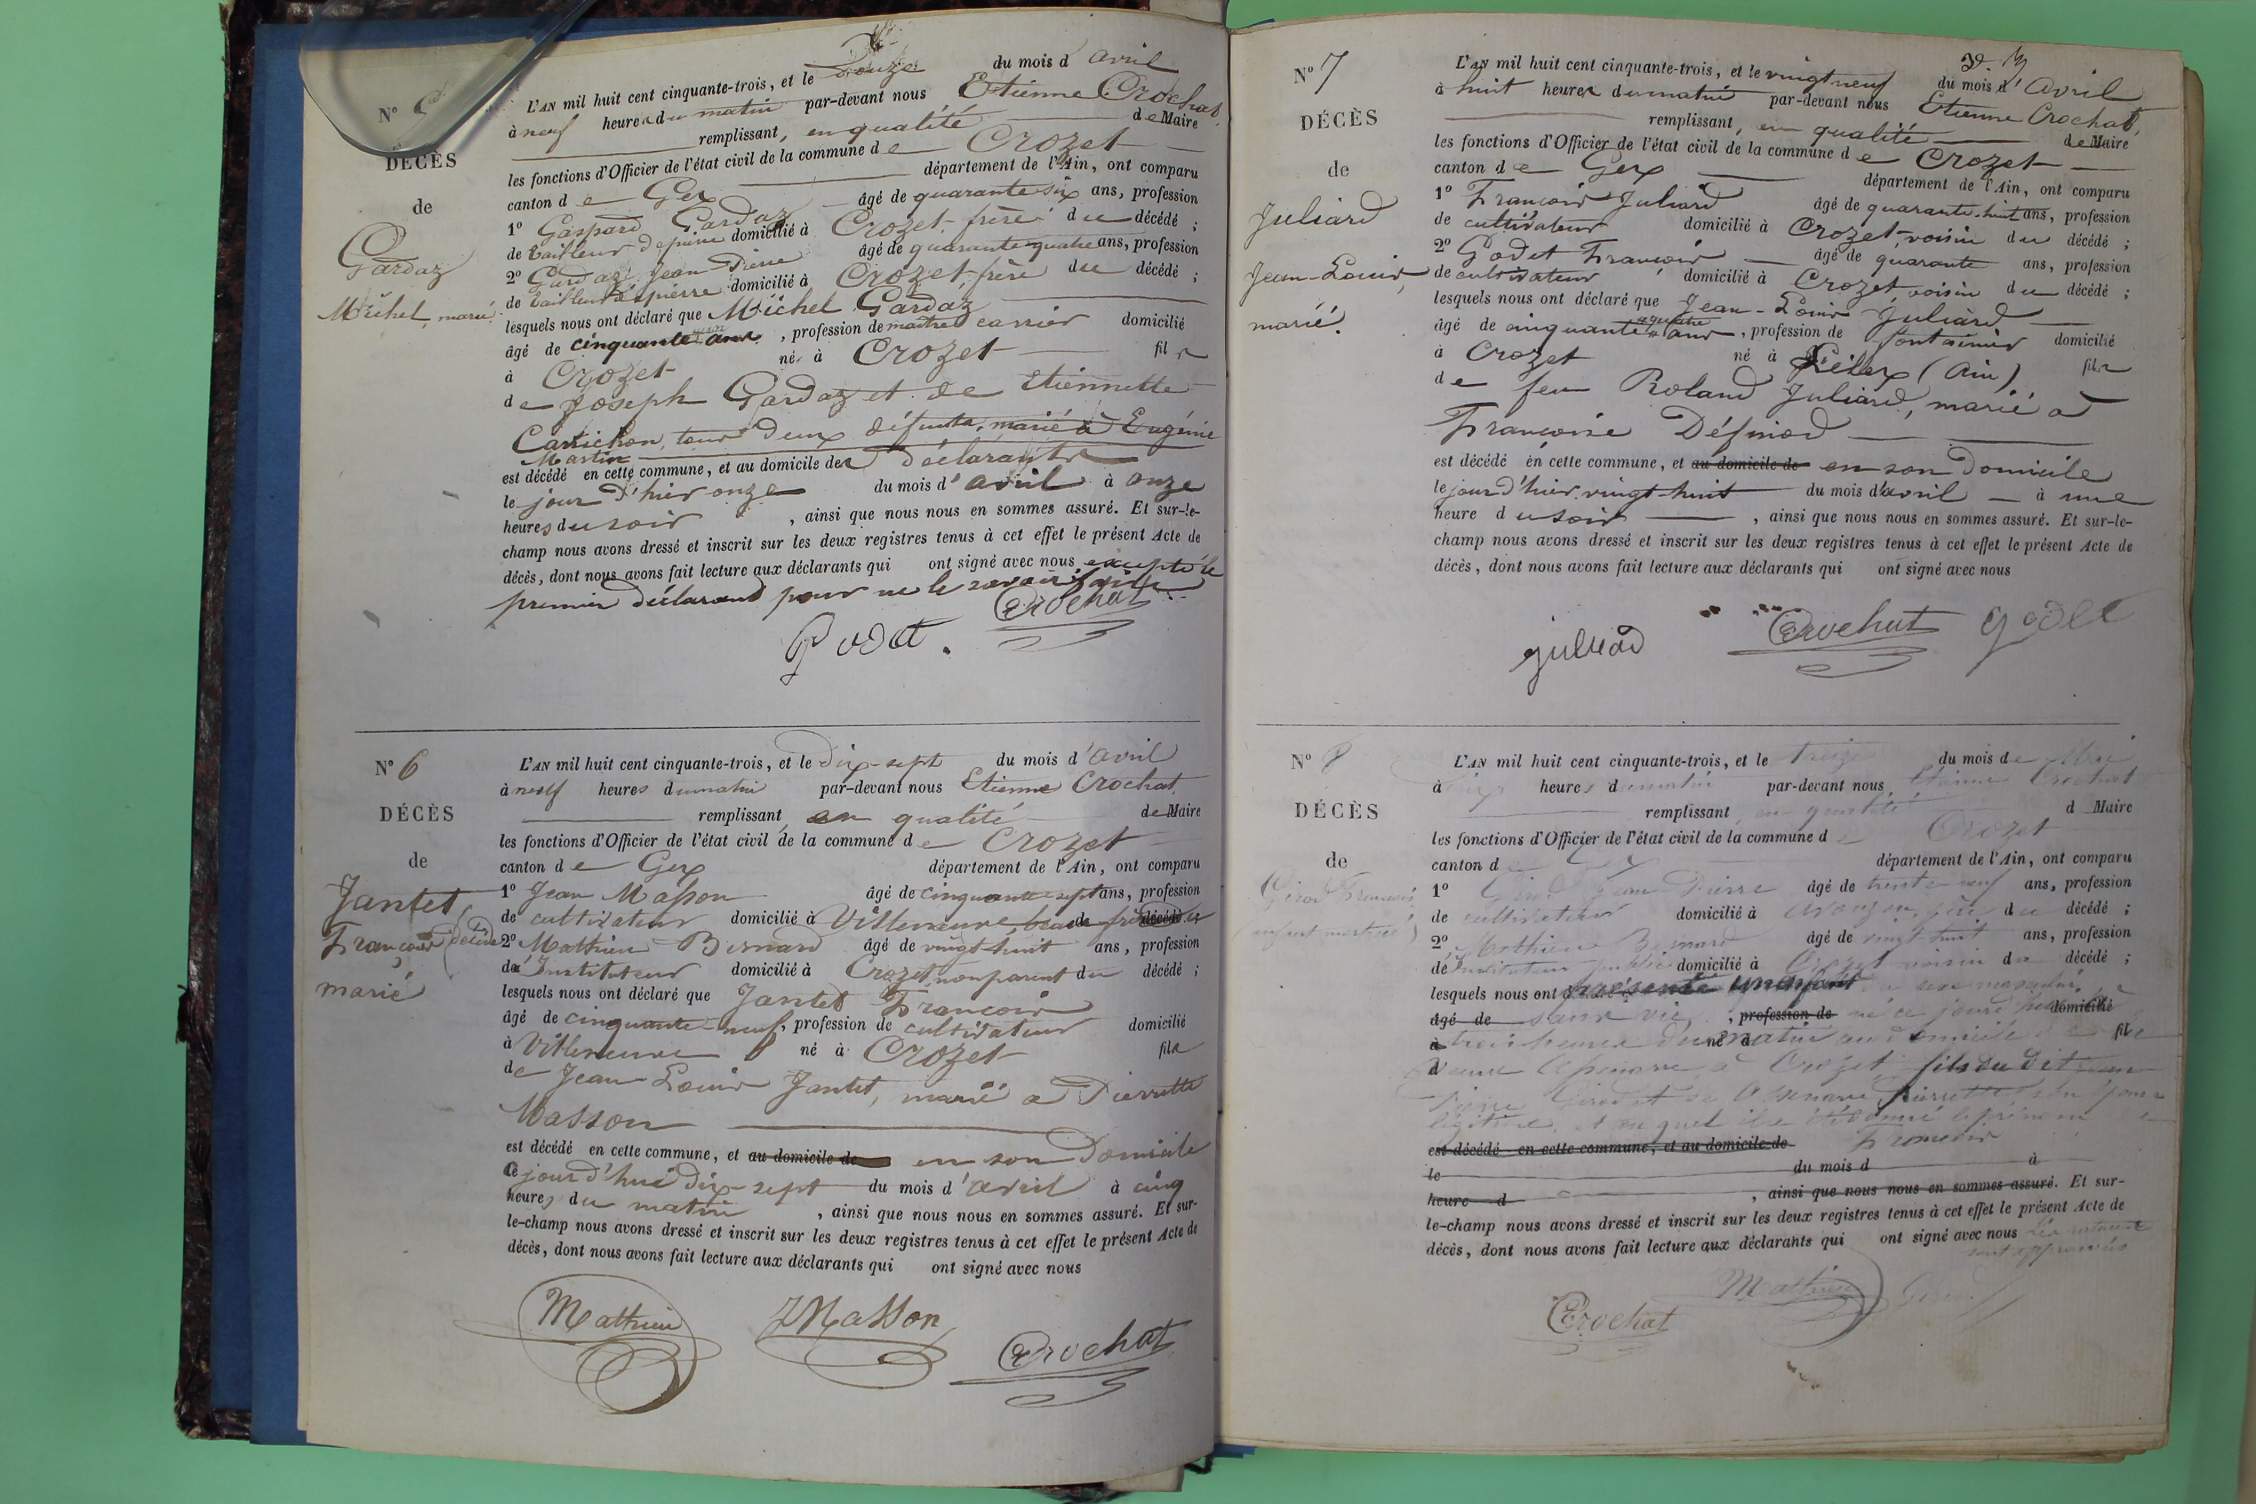 N° 5
DÉCÈS
de
Gardaz
Michel, marié.
L'AN mil huit cent cinquante-trois, et le Douze du mois d'avril
à neuf heures du matin par-devant nous Etienne Crochat,
remplissant, en qualité de Maire
les fonctions d'Officier de l'état civil de la commune de Crozet
canton de Gex département de l'Ain, ont comparu
1° Gaspard Gardaz âgé de quarante six ans, profession
de tailleur de pierre domicilié à Crozet, frère du décédé ;
2° Gardaz Jean Pierre âgé de quarante quatre ans, profession
de tailleur de pierre domicilié à Crozet, frère du décédé ;
lesquels nous ont déclaré que Michel Gardaz
âgé de cinquante ans, profession de maître carrier domicilié
à Crozet né à Crozet fils
de Joseph Gardaz et de Etiennette
Carrichon, tous deux défunts, marié à Eugénie
Martin
est décédé en cette commune, et au domicile des déclarants
le jour d'hier onze du mois d'avril à onze
heures du soir, ainsi que nous nous en sommes assuré. Et sur-le-
champ nous avons dressé et inscrit sur les deux registres tenus à cet effet le présent Acte de
décès, dont nous avons fait lecture aux déclarants qui ont signé avec nous excepté le
premier déclarant pour ne le savoir faire
Crochat
N° 6
DÉCÈS
de
Jantet,
François
marié
L'AN mil huit cent cinquante-trois, et le dix-sept du mois d'avril
à neuf heures du matin par-devant nous Etienne Crochat,
remplissant, en qualité de Maire
les fonctions d'Officier de l'état civil de la commune de Crozet
canton de Gex département de l'Ain, ont comparu
1° Jean Masson âgé de cinquante sept ans, profession
de cultivateur domicilié à Villeneuve, beau frère du décédé
2° Mathieu Bernard âgé de vingt-huit ans, profession
d'Instituteur domicilié à Crozet, non parent du décédé ;
lesquels nous ont déclaré que Jantet François
âgé de cinquante-neuf, profession de cultivateur domicilié
à Villeneuve né à Crozet fils
de Jean-Louis Jantet, marié à Pierrette
Masson
est décédé en cette commune, et au domicile de en son Domicile
le jourd'hui dix-sept du mois d'avril à cinq
heures du matin, ainsi que nous nous en sommes assuré. Et sur-
le-champ nous avons dressé et inscrit sur les deux registres tenus à cet effet le présent Acte de
décès, dont nous avons fait lecture aux déclarants qui ont signé avec nous
Mathieu JMasson Crochat
N° 7
DÉCÈS
de
Juliard
Jean-Louis,
marié.
L'AN mil huit cent cinquante-trois, et le vingt neuf du mois d'avril
à huit heures du matin par-devant nous Etienne Crochat,
remplissant, en qualité de Maire
les fonctions d'Officier de l'état civil de la commune de Crozet
canton de Gex département de l'Ain, ont comparu
1° François Juliard âgé de quarante-huit ans, profession
de cultivateur domicilié à Crozet, voisin du décédé ;
2° Godet François âgé de quarante ans, profession
de cultivateur domicilié à Crozet, voisin du décédé ;
lesquels nous ont déclaré que Jean-Louis Juliard
âgé de cinquante quatre ans, profession de fontainier domicilié
à Crozet né à Léllex (Ain) fils
de feu Roland Juliard, marié à
Françoise
est décédé en cette commune, et au domicile de en son Domicile
le jour d'hier vingt-huit du mois d'avril à une
heure du soir, ainsi que nous nous en sommes assuré. Et sur-le-
champ nous avons dressé et inscrit sur les deux registres tenus à cet effet le présent Acte de
décès, dont nous avons fait lecture aux déclarants qui ont signé avec nous
Crochat godet
N° 8
DÉCÈS
de
Girod François
L'AN mil huit cent cinquante-trois, et le treize du mois de Mai
à heures du matin par-devant nous Etienne Crochat
remplissant, en qualité d Maire
les fonctions d'Officier de l'état civil de la commune de Crozet
canton de Gex département de l'Ain, ont comparu
1° Girod Jean Pierre âgé de trente neuf ans, profession
de cultivateur domicilié à père du décédé ;
2° Mathieu Bernard âgé de vingt huit ans, profession
d'Instituteur public domicilié à Crozet voisin du décédé ;
lesquels nous ont présenté un enfant du sexe masculin,
âgé de sans vie, profession de né ce jourd'hui domicilié
à trois heures du matin au domicile de fil
à Crozet, fils du dit Jean
Pierre Girod et de Pierrette son épouse
légitime, et auquel il a été donné le prénom de
est décédé en cette commune, et au domicile de François
le du mois d à
heure d, ainsi que nous nous en sommes assuré. Et sur-
le-champ nous avons dressé et inscrit sur les deux registres tenus à cet effet le présent Acte de
décès, dont nous avons fait lecture aux déclarants qui ont signé avec nous
sont approuvés
Mathieu Girod
Crochat